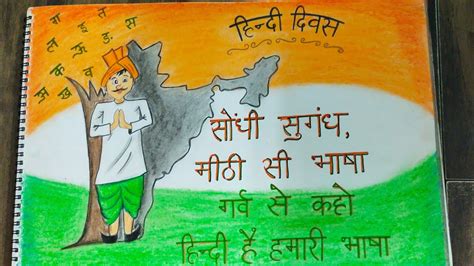 हिन्दी दिवस
ग इ त
ल
स
क व
ख
सोंधी सुगंध,
मीठी सी भाषा
गर्व से कहो
हिन्दी है हमारी भाषा